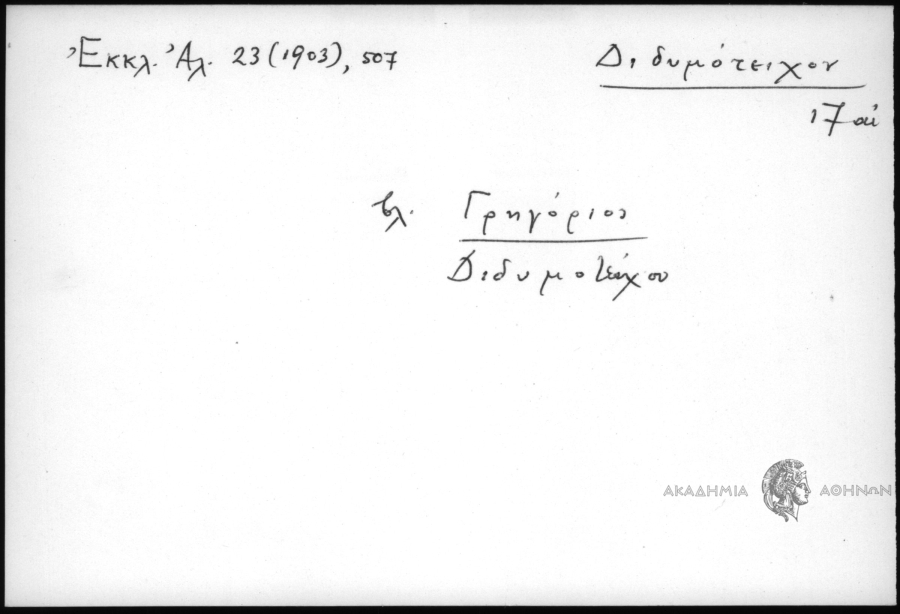 Ἐκκλ. Ἀλ. 23 (1903), 507
Διδυμότειχον
17 αἰ
βλ. Γρηγόριος
Διδυμοτείχου
ΑΚΑΔΗΜΙΑ ΑΘΗΝΩΝ